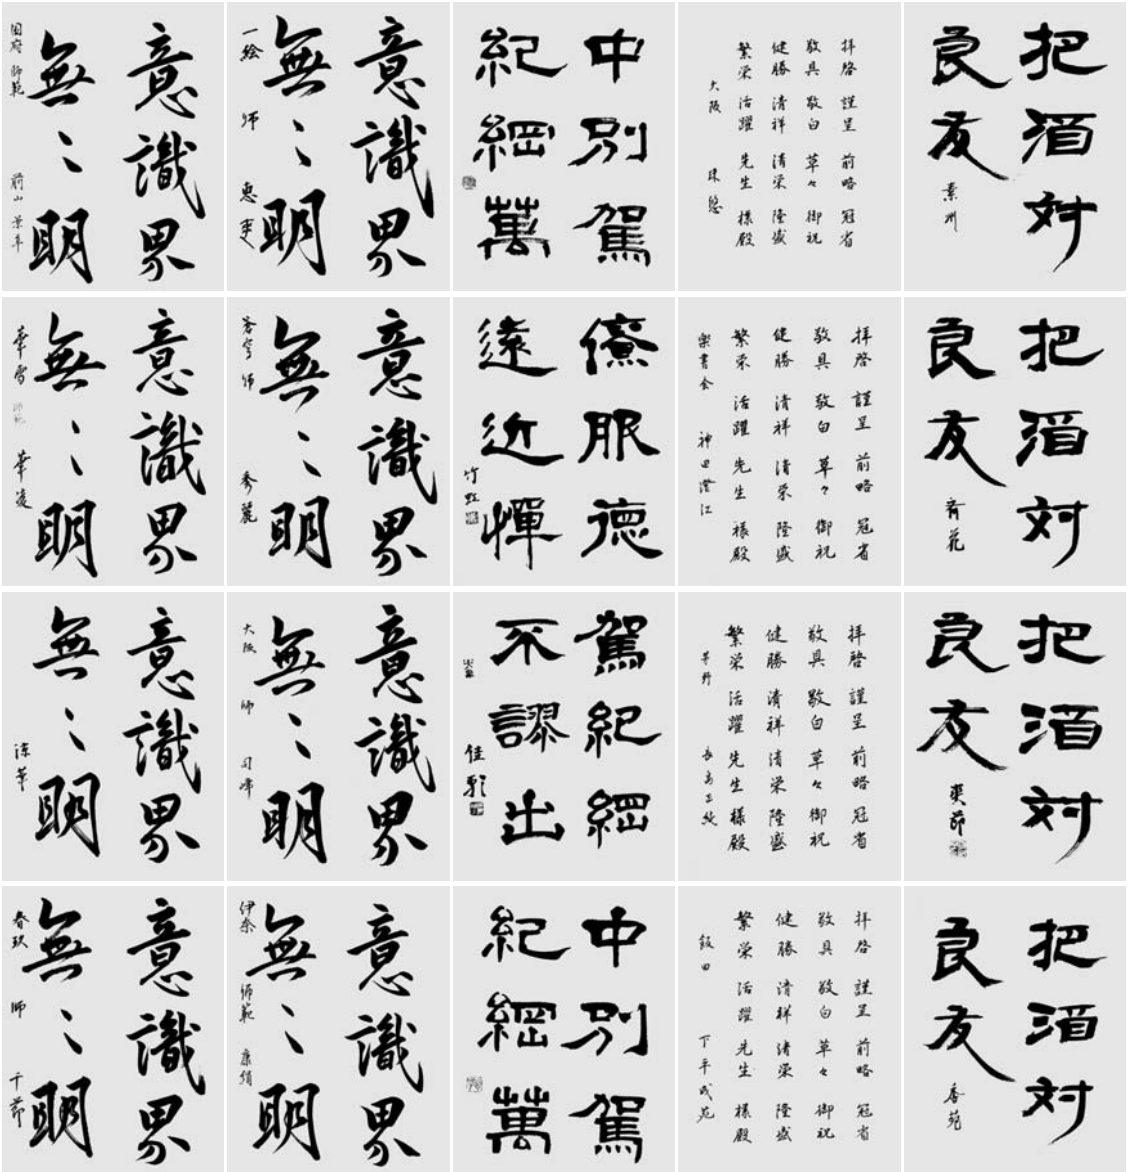 意識界
無〻明
国府 師範 前山
意識界
無〻明
一絵 師
中別駕
紀綱萬
拝啓 謹呈 前略 冠省
敬具 敬白 草々 御祝
健勝 清祥 清栄 隆盛
繁栄 活躍 先生 様殿
大阪 珠悠
把酒対
良友
素州
意識界
無〻明
華雪 師範 華凌
意識界
無〻明
蒼穹 師 秀麗
僚服徳
遠近憚
竹虹
拝啓 謹呈 前略 冠省
敬具 敬白 草々 御祝
健勝 清祥 清栄 隆盛
繁栄 活躍 先生 様殿
楽書会 神田澄江
把酒対
良友
意識界
無〻明
涼華
意識界
無〻明
大阪 師 司峰
駕紀綱
不謬出
拝啓 謹呈 前略 冠省
敬具 敬白 草々 御祝
健勝 清祥 清栄 隆盛
繁栄 活躍 先生 様殿
茅野
把酒対
良友
爽節
意識界
無〻明
春玖 師 千節
意識界
無〻明
伊奈 師範 康絹
中別駕
紀綱萬
拝啓 謹呈 前略 冠省
敬具 敬白 草々 御祝
健勝 清祥 清栄 隆盛
繁栄 活躍 先生 様殿
飯田 下平成苑
把酒対
良友
香苑